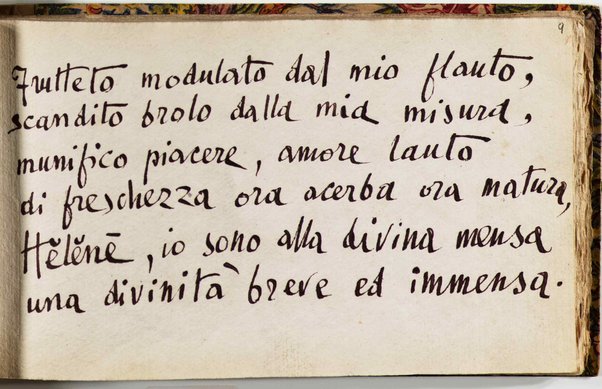 9
Frutteto modulato dal mio flauto,
scandito brolo dalla mia misura,
munifico piacere, amore lauto
di freschezza ora acerba ora matura,
Hĕlĕnē, io sono alla divina mensa
una divinità breve ed immensa.